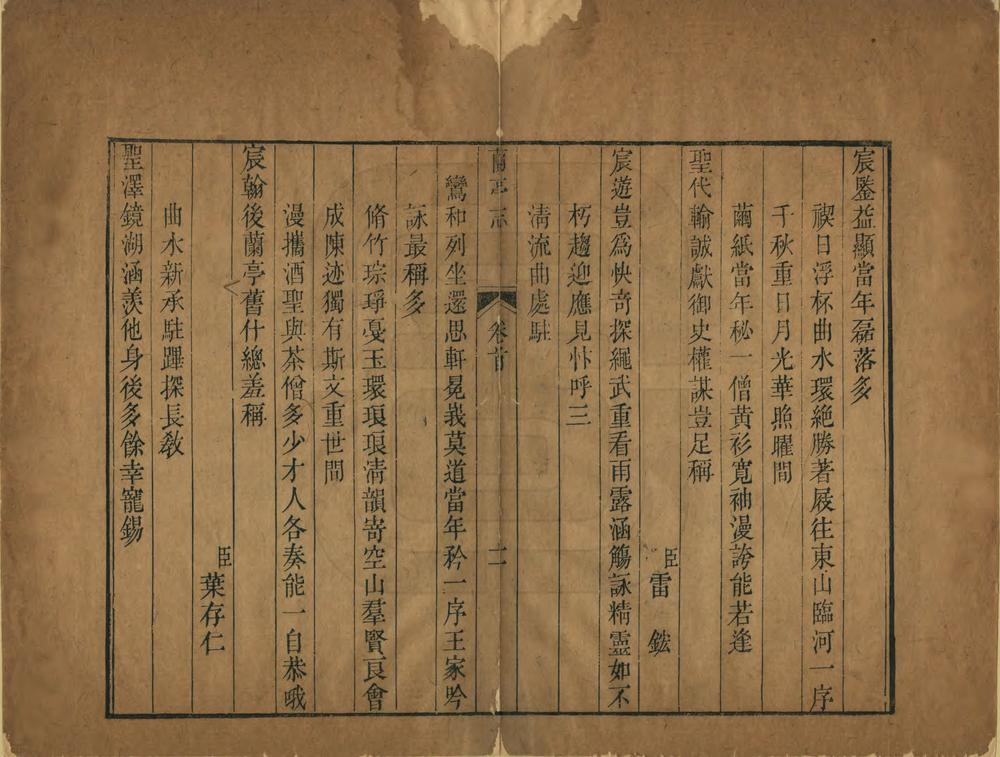 宸鑒益顯當年磊落多
禊日浮杯曲水環絶勝著屐往東山臨河一序
千秋重日月光華照曜間
繭紙當年秘一僧黄衫寛袖漫誇能若逢
聖代輸誠獻御史權謀豈足稱
臣雷鋐
宸遊豈爲快竒探繩武重看雨露涵觴詠精靈如不
朽趨迎應見忭呼三
清流曲處駐
蘭亭志
卷首
二
鸞和列坐還思軒冕峩莫道當年矜一序王家吟
詠最稱多
脩竹琮琤戛玉環琅琅清韻嵜空山羣賢良會
成陳迹獨有斯文重世間
漫攜酒聖與茶僧多少才人各奏能一自恭哦
宸翰後蘭亭舊什總羞稱
臣葉存仁
曲水新承駐蹕探長敎
聖澤鏡湖涵羨他身後多餘幸寵錫